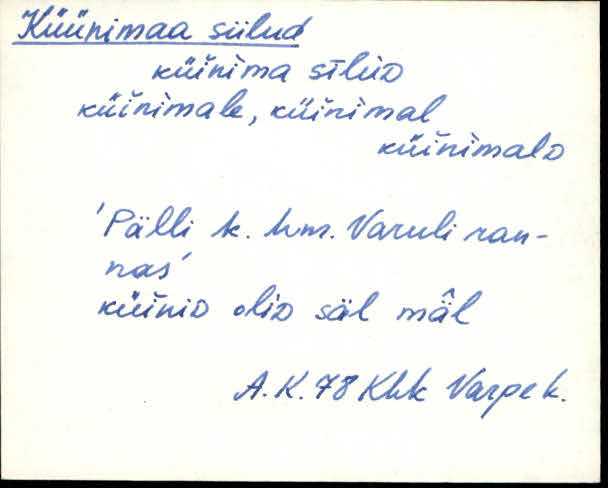 Küünimaa siilud
küünima sīluᴅ
küünimale, küünimal
küünimalᴅ
'Pälli k. hm. Varuli ran-
nas'
küüniᴅ oliᴅ säl mâl
A.K. 78 Khk Varpe k.